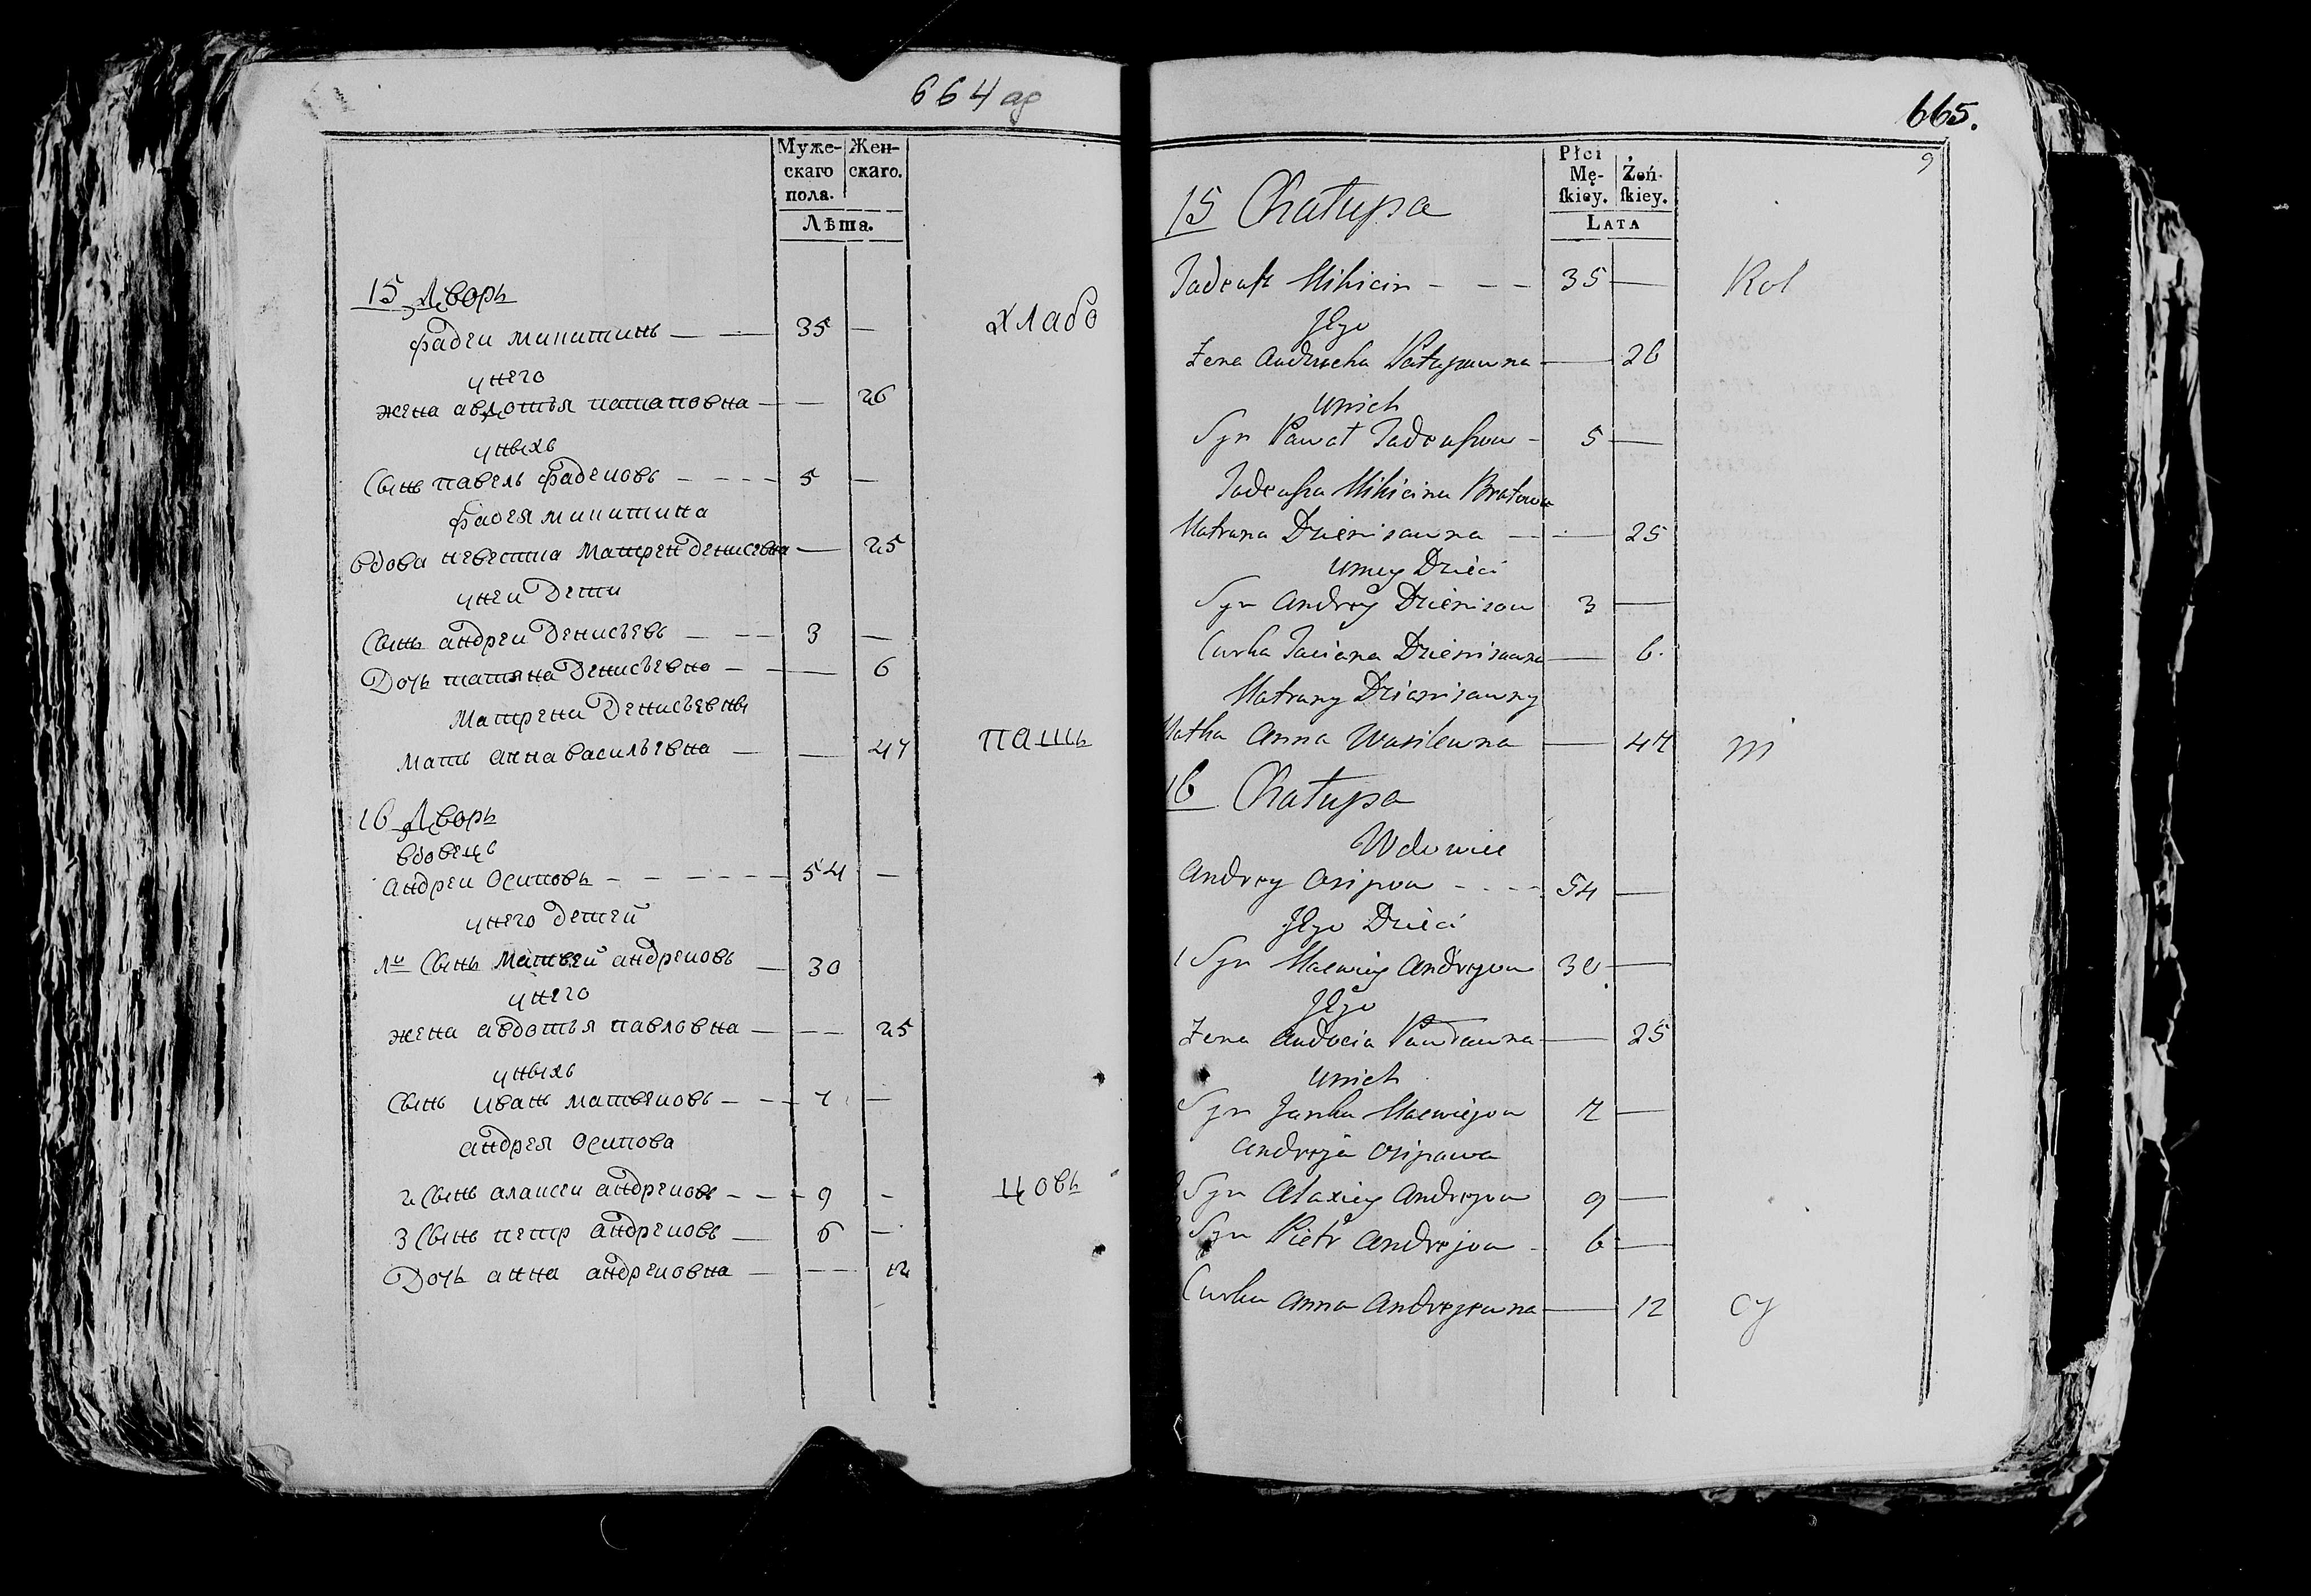 664 об
Муже-
скаго
пола.
Жен-
скаго.
Лѣта.
15 Дворъ
фадеи микитинъ — — 35 —
унего
жена авдотья патаповна — — 26
уныхъ
Сынъ павелъ фадеиовъ - - - - 5 —
фадея микитина
вдова невестка Матрен денисевна — 25
унеи дети
Сынъ андреи денисьевъ — — 3 —
Дочь татяна денисьевна — — 6
Матрени денисьевны
мать анна васильевна — — 47
16 Дворъ
вдовецъ
андреи осиповъ - - - - - - 54 —
унего детей
1й Сынъ матвей андреиовъ — 30
унего
жена авдотья павловна — — 25
уныхъ
Сынъ иванъ матвеиовъ - - - 7 —
андрея осипова
2 Сынъ алаксеи андреиовъ - - - 9 -
3 Сынъ петр андреиовъ — 6 —
Дочь анна андреиовна — — 12
хлабо
пашь
цовъ
665.
9
Płci
Mę-
ſkiey.
Żeń-
ſkiey.
LATA
15 Chałupa
Tadeusz Mikicin - - - 35 — Rol
Jego
Żena Audocha Patapawna — 26
unich
Syn Paweł Tadeuszow - 5 —
Tadeusza Mikicina Bratowa
Matrana Dzienisawna — — 25
umey Dzieci
Syn Andrey Dzienisow 3 —
Curka Taciana Dzienisawna — 6.
Matrany Dzienisawny
Matka Anna Wasilewna — 47 ni
16 Chałupa
Wdowiec
Andrey Osipow - - - - 54 —
Jego Dzieci
1 Syn Maciwiey Andrejow 30 —
Jego
Żena Audocia Pawławna — 25
unich
Syn Janka Maciwiejow 7 —
Andreja Osipawa
Syn Alaxiey Andrejow 9 —
Syn Pietr Andrejow - 6 —
Curka Anna Andrejewna — 12 cy